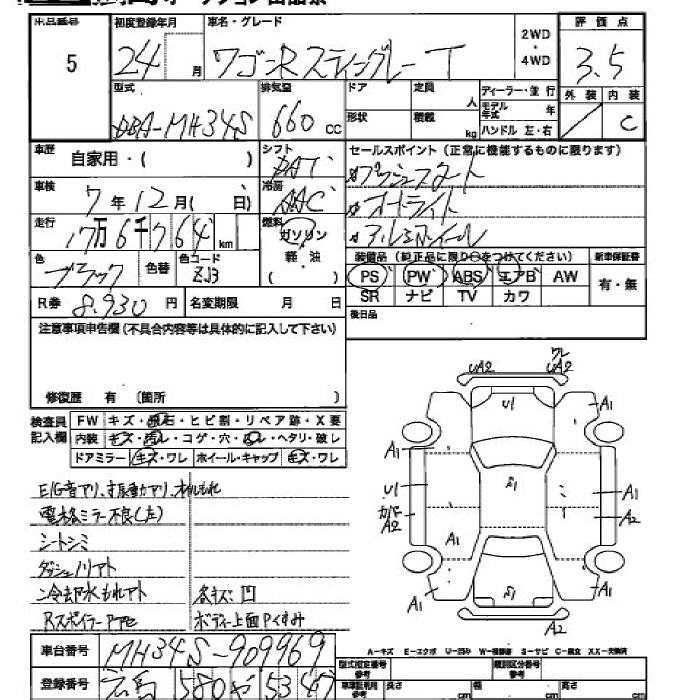 出品番号 初度登録年月 車名・グレード 2WD・4WD 評価点
5 24 月 ワゴンR スティングレー T 3.5
型式 排気量 ドア 定員 人 ディーラー・並行 外装 内装
DBA-MH34S 660 cc 形状 積載 kg モデル年式 年 C
ハンドル 左・右
車歴 自家用・( ) シフト DAT セールスポイント(正常に機能するものに限ります)
車検 7年12月( 日) 冷房 AAC プッシュスタート
オートライト
走行 17万6千764 km 燃料 ガソリン アルミホイール
軽・油
( )
色 ブラック 色替 色コード ZJ3 装備品(純正品に限り○をつけてください) 新車保証書
PS PW ABS エアB AW 有・無
R券 8,930円 名変期限 月 日 SR ナビ TV カワ
後日品
注意事項申告欄(不具合内容等は具体的に記入して下さい)
修復歴 有 (箇所 )
検査員記入欄 FW キズ・飛石・ヒビ割・リペア跡・X要
内装 キズ・汚れ・コゲ・穴・ ・ヘタリ・破レ
ドアミラー キズ・ワレ ホイール・キャップ キズ・ワレ
E/G音アリ、 振動アリ、オイルもれ
電格ミラー不良(左)
シートシミ
ダッシュノリアト
冷却水もれアト 各キズ凹
Rスポイラー ボディー上面Pくすみ
ワレ
UA2 UA2
U1 A1
A1
U1 A1
カバー A2 A2
A1
A1 A1
A2
A-キズ E-エクボ U-凹み W-補修跡 S-サビ C-腐食 XX-交換済
車台番号 MH34S-909969
型式指定番号 参考 類別区分番号 参考
登録番号 広島 580 が 5347
長さ cm 幅 cm 高さ cm